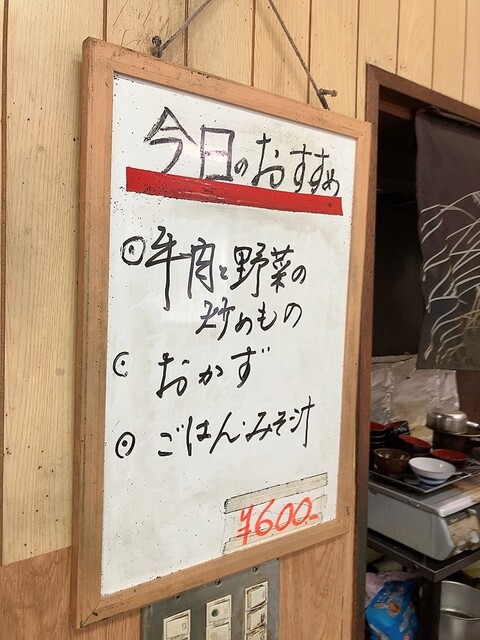 今日のおすすめ
⦿牛肉と野菜の
炒めもの
⦿おかず
⦿ごはん・みそ汁
¥600-